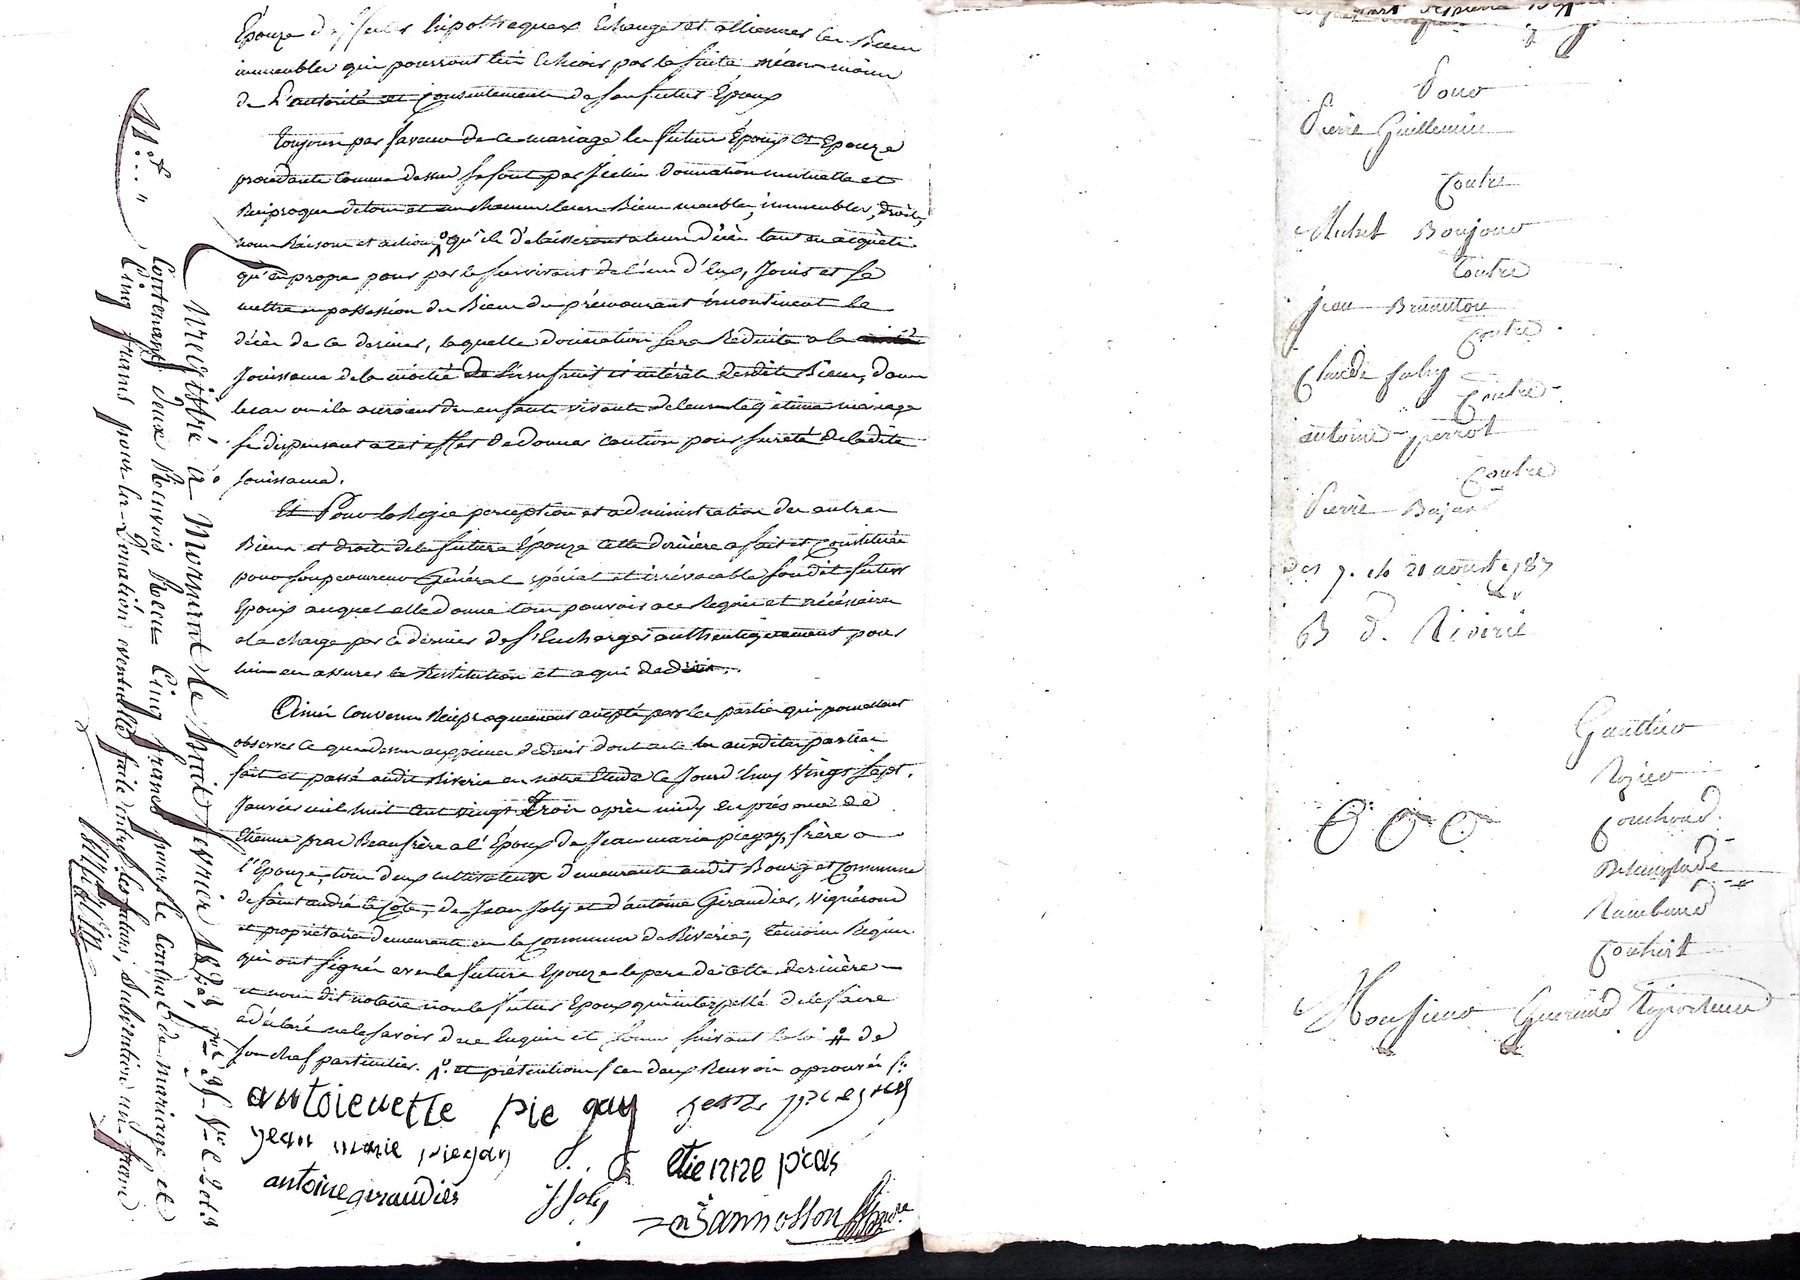 Épouze
immeubles qui pourront lui Echeoir par la suite néanmoins
de L'autorité et Consentement de son futur Époux
Toujours par faveur de ce mariage les futurs Époux et Epouze
procedants comme dessus se font par Icelui donnation mutuelle et
Réciproque de tous et un chacun leurs Biens meubles, immeubles, droits,
noms Raisons et actions qu'ils délaisseront a leurs décès tant en acquets
qu'en propre pour par le survivant de l'un d'eux, Jouir et se
mettre en possession des Biens du prémourant incontinent le
décès de ce dernier, laquelle donnation sera Reduite a la
Jouissance de la moitié de l'usufruit et intérêts desdits Biens, dans
le cas ou ils auroient des enfants vivants de leur légitime mariage
se dispensant a cet effet de donner caution pour sureté de ladite
Jouissance.
Et Pour la Régie perception et administration des autres
Biens et droits de la future Épouze cette dernière a fait et Constitué
pour son procureur Général spécial et irrévocable sondit futur
Epoux auquel elle donne tous pouvoirs a ce Requis et nécéssaires
a la charge par ce dernier de s'Encharger authentiquement pour
lui en assurer la Restitution et a qui de droit.
Ainsi Convenu Réciproquement accepté par les parties qui promettent
observer ce que dessus aux peines de droit dont acte les susdites parties
fait et passé audit Riverie en notre Etude ce Jourd'huy Vingt Sept
Janvier mil huit cent vingt Trois après midy en présence de
Etienne pras Beaufrère a l'Époux de Jean marie piegay, frère a
l'Epouze, tous deux cultivateurs demeurants audit Bourg et Commune
de saint andré la Côte, de Jean Joly et d'antoine Giraudier, vignerons
et propriétaires demeurants en la commune de Riverie, témoins Requis
qui ont signé avec la future Epouze le pere de cette dernière
et nous dit notaire non le futur Epoux qui interpellé de le faire
a déclaré ne le savoir de ce Enquis et Sommé suivant la loi # de
son chef particulier. et prétentions / ces deux Renvois aprouvés /.
antoienette pie gay
jean marie piegay
etienne pras
antoine giraudier
J Joly
Enregistré à Mornant le huit fevrier 1823
Contenant deux Renvois Reçu Cinq francs pour le Contrat de Mariage et
Cinq francs pour la Donation eventuelle faite entre les futurs, Subvention un franc
Pour
Pierre Guillermin
Contre
Michel Bonjour
Contre
jean Bruneton
Contre
Claude faby
Contre
antoine perrot
Contre
Pierre Bajard
des 7. et 21 aoust 1787
B d. Riverie
Gauttier
Rozier
Couchoud
Rambaud
Monsieur Guerind Raporteur